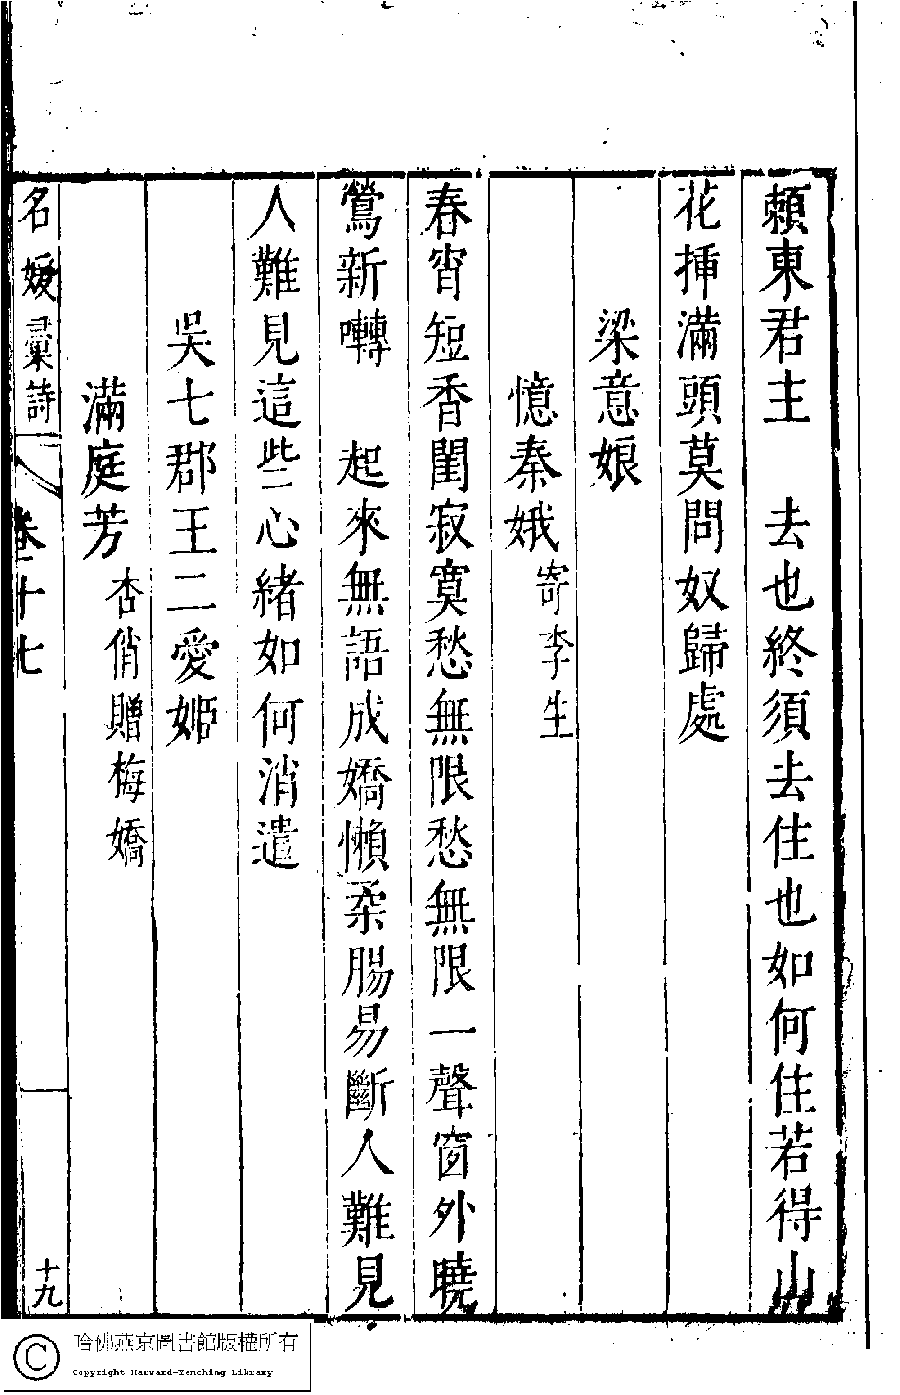 賴東君主　去也終須去住也如何住若得山
花揷滿頭莫問奴歸處
梁意娘
憶秦娥寄李生
春宵短香閨寂寞愁無限愁無限一聲窗外曉
鶯新囀　起來無語成嬌懶柔腸易斷人難見
人難見這些心緒如何消遣
吳七郡王二愛姬
滿庭芳杏俏贈梅嬌
名媛彙詩
卷十七
十九
哈佛燕京圖書館版權所有
Copyright Harvard-Yenching Library